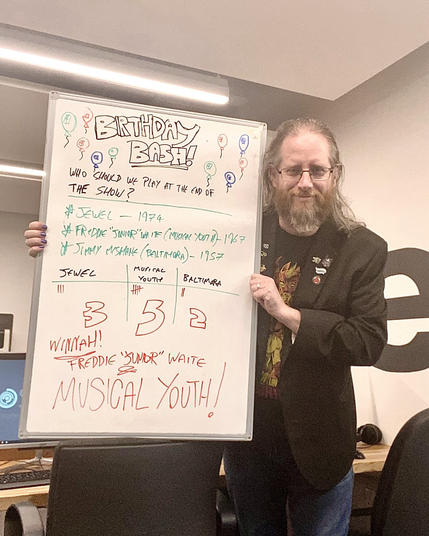 BIRTHDAY
BASH!
WHO SHOULD WE PLAY AT THE END OF
THE SHOW?
# JEWEL — 1974
# FREDDIE "JUNIOR" WAITE (MUSICAL YOUTH) – 1967
# JIMMY MCSHANE (BALTIMORA) – 1957
JEWEL MUSICAL YOUTH BALTIMORA
3 5 2
WINNAH!
FREDDIE "JUNIOR" WAITE
MUSICAL YOUTH!
e